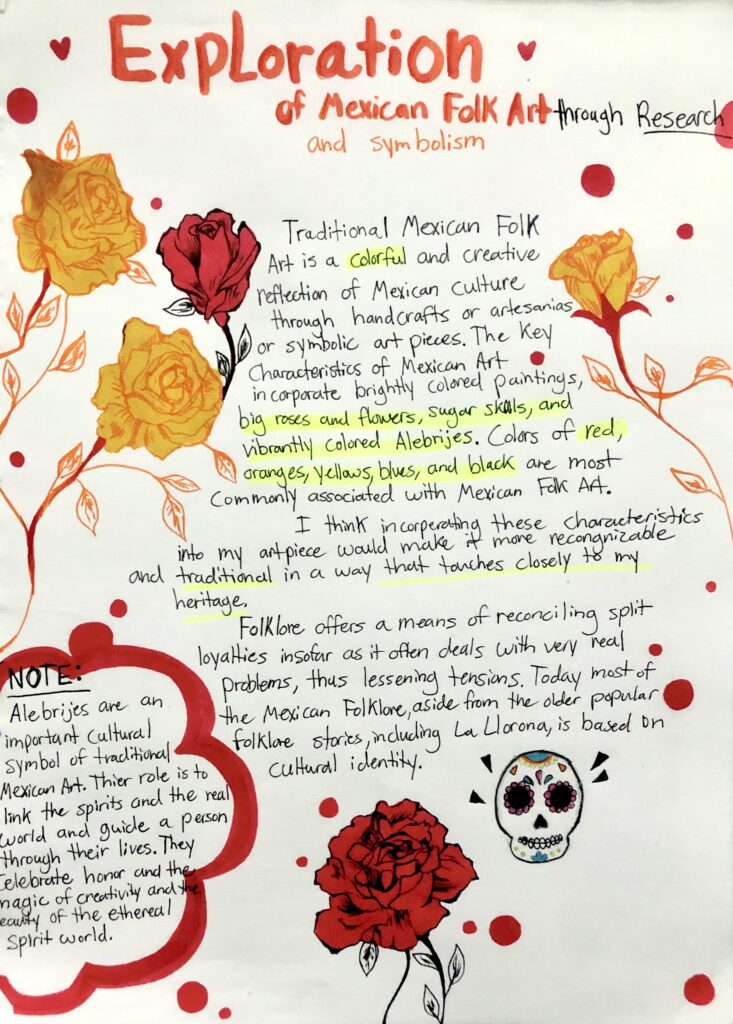 Exploration
of Mexican Folk Art through Research
and symbolism
Traditional Mexican Folk
Art is a colorful and creative
reflection of Mexican culture
through handcrafts or artesanias
or symbolic art pieces. The Key
Characteristics of Mexican Art
incorporate brightly colored paintings,
big roses and flowers, sugar skulls, and
vibrantly colored Alebrijes. Colors of red,
oranges, yellows, blues, and black are most
commonly associated with Mexican Folk Art.
I think incorperating these characteristics
into my artpiece would make it more recongnizable
and traditional in a way that touches closely to my
heritage.
Folklore offers a means of reconciling split
loyalties insofar as it often deals with very real
problems, thus lessening tensions. Today most of
the Mexican Folklore, aside from the older popular
folklore stories, including La Llorona, is based on
cultural identity.
NOTE:
Alebrijes are an
important Cultural
symbol of traditional
Mexican Art. Thier role is to
link the spirits and the real
world and guide a person
through their lives. They
Celebrate honor and the
magic of creativity and the
eauty of the ethereal
spirit world.